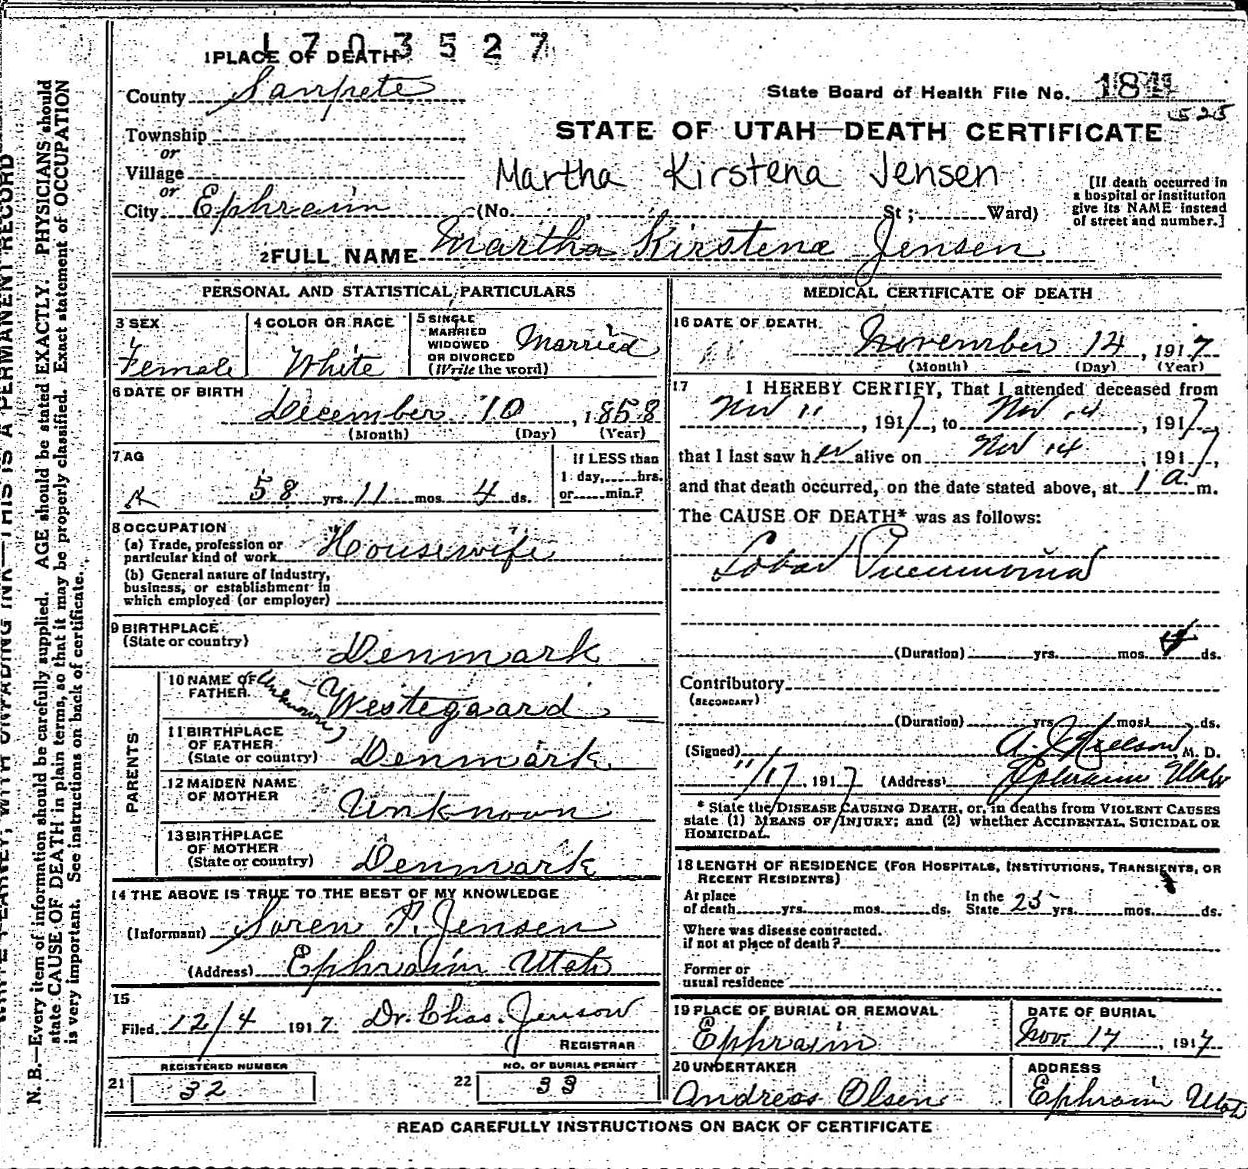 1703527
1 PLACE OF DEATH
County Sanpete
State Board of Health File No. 184
525
Township
or
Village
or
City Ephraim
STATE OF UTAH—DEATH CERTIFICATE
Martha Kirstena Jensen
(No. , St; Ward)
[If death occurred in
a hospital or institution
give its NAME instead
of street and number.]
2 FULL NAME Martha Kirstena Jensen
PERSONAL AND STATISTICAL PARTICULARS
3 SEX
Female
4 COLOR OR RACE
White
5 SINGLE
MARRIED
WIDOWED
OR DIVORCED
(Write the word)
Married
6 DATE OF BIRTH
December 10, 1858
(Month) (Day) (Year)
7 AG
58 yrs. 11 mos. 4 ds.
If LESS than
1 day, hrs.
or min.?
8 OCCUPATION
(a) Trade, profession or
particular kind of work Housewife
(b) General nature of industry,
business, or establishment in
which employed (or employer)
9 BIRTHPLACE
(State or country)
Denmark
PARENTS
10 NAME OF
FATHER
(Unknown) Westegaard
11 BIRTHPLACE
OF FATHER
(State or country) Denmark
12 MAIDEN NAME
OF MOTHER
Unknown
13 BIRTHPLACE
OF MOTHER
(State or country) Denmark
14 THE ABOVE IS TRUE TO THE BEST OF MY KNOWLEDGE
(Informant) Soren P. Jensen
(Address) Ephraim Utah
15
Filed 12/4 1917 Dr. Chas. Jenson
REGISTRAR
REGISTERED NUMBER
21 32
NO. OF BURIAL PERMIT
22 33
MEDICAL CERTIFICATE OF DEATH
16 DATE OF DEATH
November 14, 1917
(Month) (Day) (Year)
17 I HEREBY CERTIFY, That I attended deceased from
Nov 11, 1917, to Nov 14, 1917,
that I last saw her alive on Nov 14, 1917,
and that death occurred, on the date stated above, at 1 a. m.
The CAUSE OF DEATH* was as follows:
Lobar Pneumonia
(Duration) yrs. mos. ds.
Contributory
(SECONDARY)
(Duration) yrs. mos. ds.
(Signed) A. J. Nielson M. D.
11/17, 1917 (Address) Ephraim Utah
* State the DISEASE CAUSING DEATH, or, in deaths from VIOLENT CAUSES
state (1) MEANS OF INJURY; and (2) whether ACCIDENTAL, SUICIDAL OR
HOMICIDAL.
18 LENGTH OF RESIDENCE (FOR HOSPITALS, INSTITUTIONS, TRANSIENTS, OR
RECENT RESIDENTS)
At place
of death yrs. mos. ds.
In the
State 25 yrs. mos. ds.
Where was disease contracted.
if not at place of death?
Former or
usual residence
19 PLACE OF BURIAL OR REMOVAL
Ephraim
DATE OF BURIAL
Nov. 17, 1917
20 UNDERTAKER
Andreas Olsen
ADDRESS
Ephraim Utah
READ CAREFULLY INSTRUCTIONS ON BACK OF CERTIFICATE
N. B.—Every item of information should be carefully supplied. AGE should be stated EXACTLY. PHYSICIANS should
state CAUSE OF DEATH in plain terms, so that it may be properly classified. Exact statement of OCCUPATION
is very important. See instructions on back of certificate.